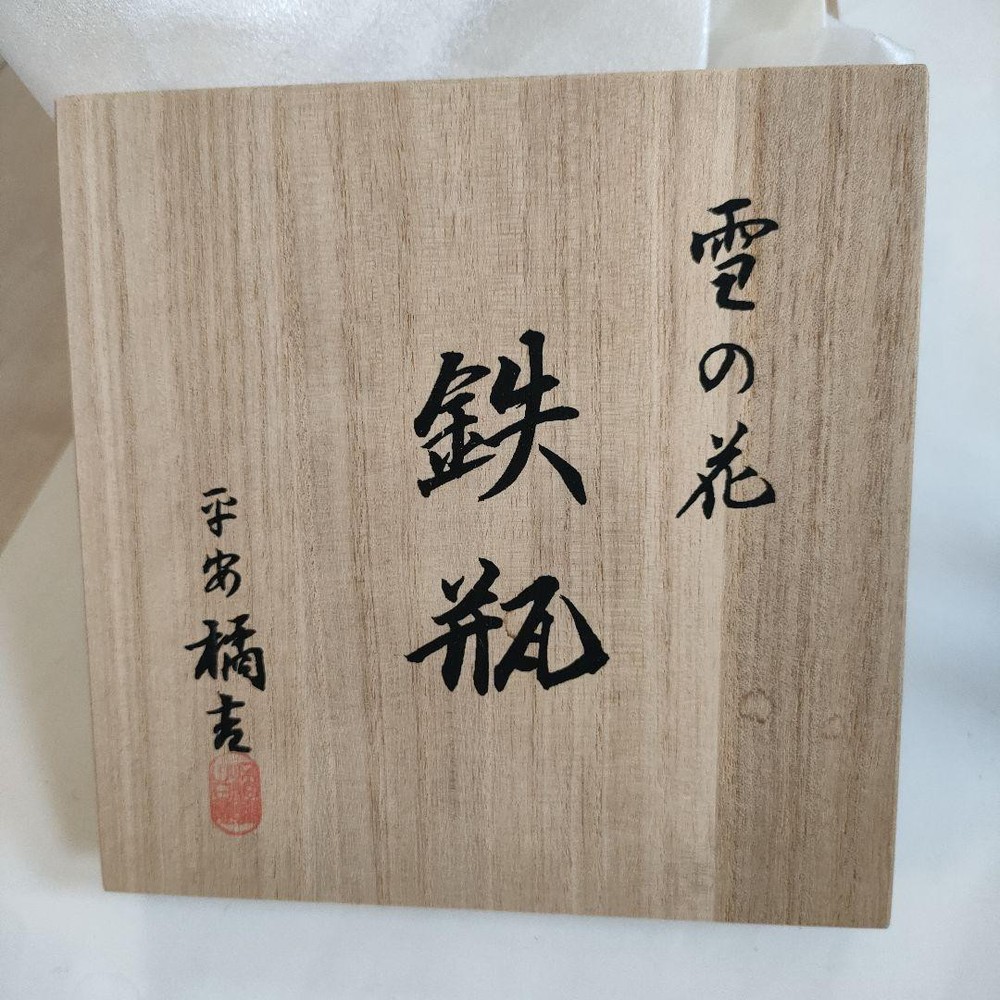 雪の花
鉄瓶
平安橘吉